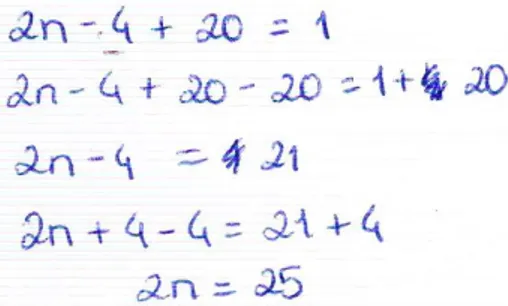 2n - 4 + 20 = 1
2n - 4 + 20 - 20 = 1 + 20
2n - 4 = 21
2n + 4 - 4 = 21 + 4
2n = 25